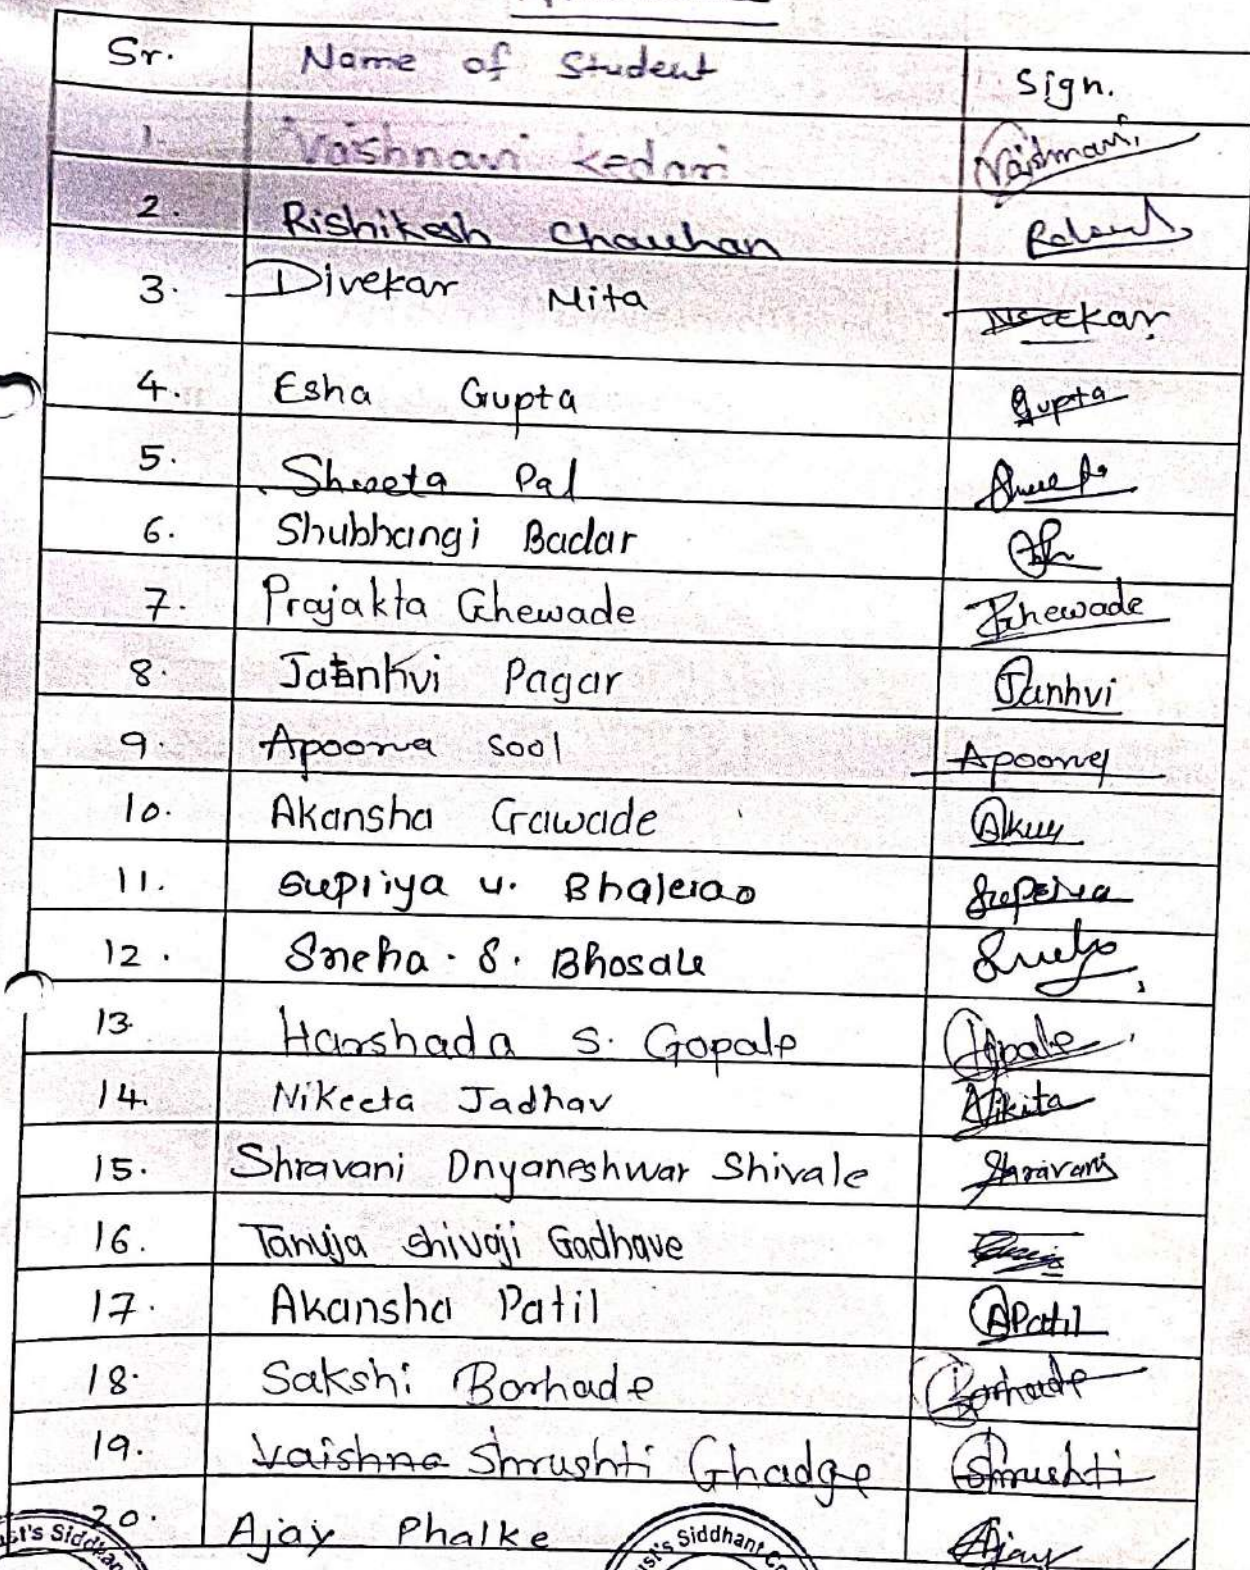 Sr. Name of Student Sign.
1. Vaishnavi Kedari Vaishnavi
2. Rishikesh Chauhan
3. Divekar Nita
4. Esha Gupta Gupta
5. Shweta Pal
6. Shubhangi Badar
7. Prajakta Ghewade Ghewade
8. Janhvi Pagar Janhvi
9. Apoorva Sool Apoorva
10. Akansha Gawade
11. Supriya u. Bhalerao Supriya
12. Sneha. S. Bhosale Sneha
13. Harshada S. Gopale Gopale
14. Nikeeta Jadhav Nikita
15. Shravani Dnyaneshwar Shivale Shravani
16. Tanuja Shivaji Gadhave
17. Akansha Patil APatil
18. Sakshi Borhade Borhade
19. Vaishna Shrushti Ghadge Shrushti
20. Ajay Phalke Ajay
st's Siddhan st's Siddhant Co